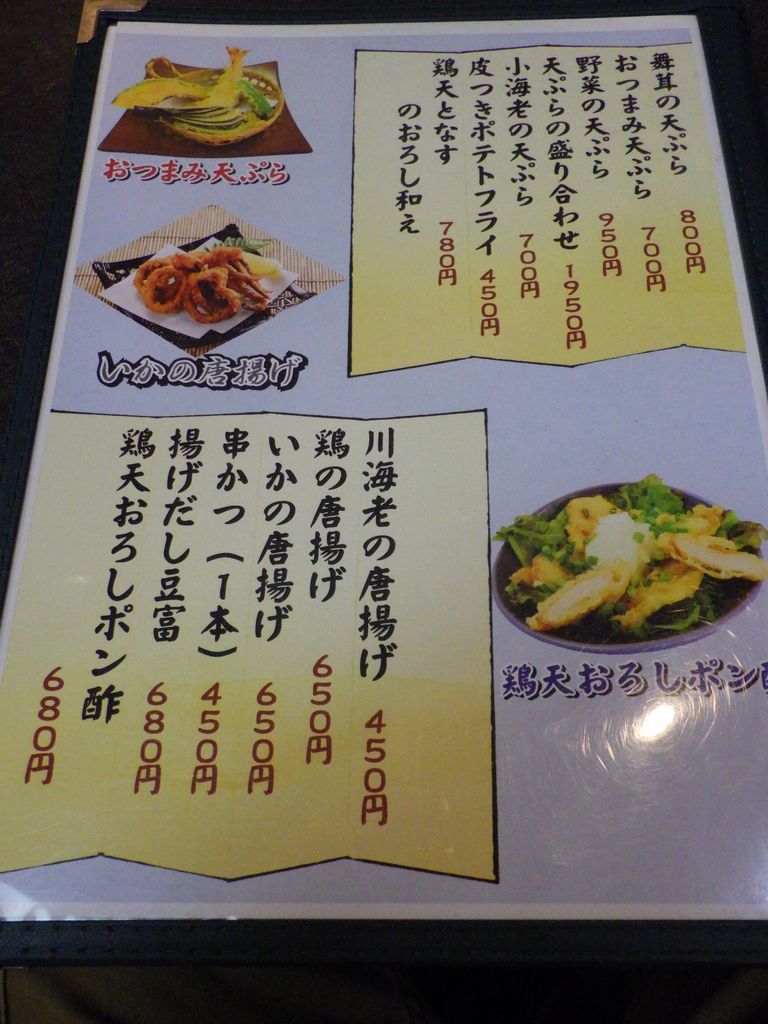 舞茸の天ぷら 800円
おつまみ天ぷら 700円
野菜の天ぷら 950円
天ぷらの盛り合わせ 1950円
小海老の天ぷら 700円
皮つきポテトフライ 450円
鶏天となす
のおろし和え 780円
おつまみ天ぷら
いかの唐揚げ
川海老の唐揚げ 450円
鶏の唐揚げ 650円
いかの唐揚げ 650円
串かつ(1本) 450円
揚げだし豆富 680円
鶏天おろしポン酢 680円
鶏天おろしポン酢